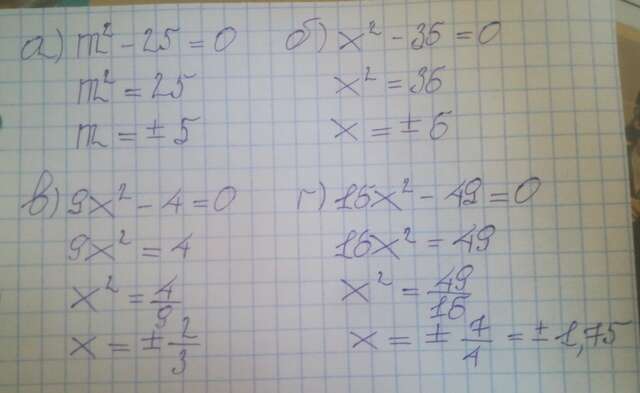 а) m² - 25 = 0
m² = 25
m = ± 5
б) x² - 36 = 0
x² = 36
x = ± 6
в) 9x² - 4 = 0
9x² = 4
x² = 4/9
x = ± 2/3
г) 16x² - 49 = 0
16x² = 49
x² = 49/16
x = ± 7/4 = ± 1,75